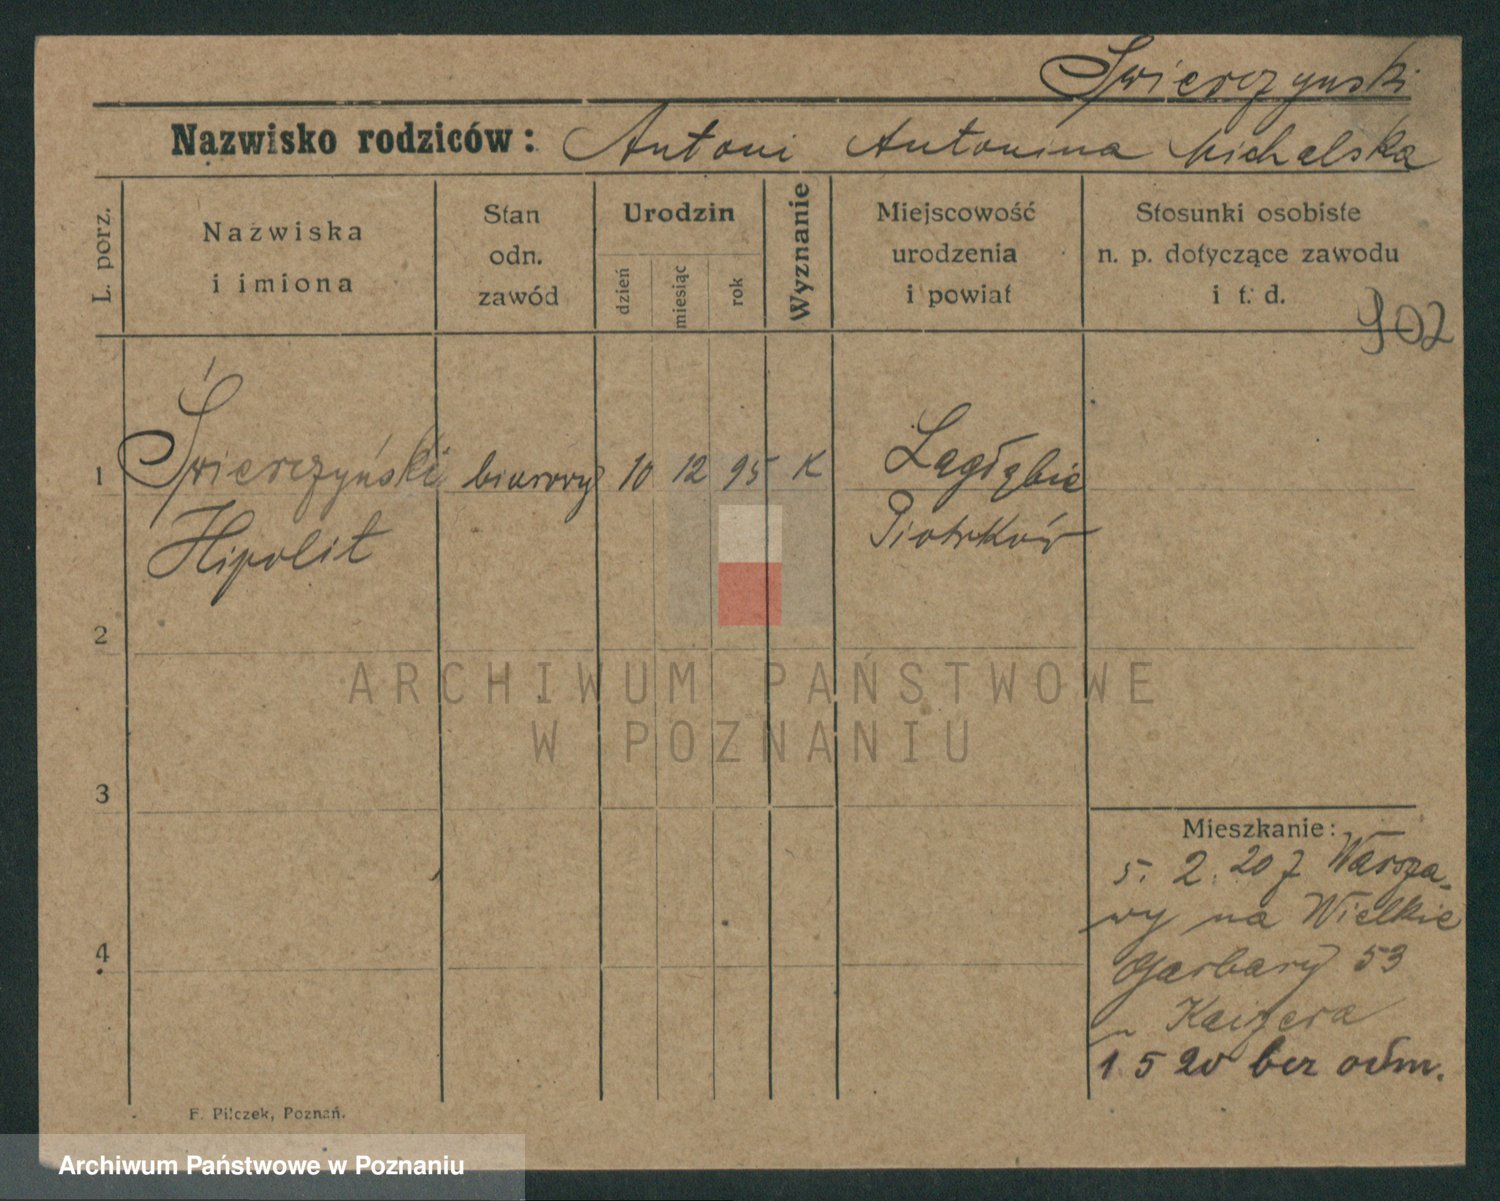 Świerczynski
Nazwisko rodziców: Antoni Antonina Michalska
L. porz.
Nazwiska
i imiona
Stan
odn.
zawód
Urodzin
dzień
miesiąc
rok
Wyznanie
Miejscowość
urodzenia
i powiat
Stosunki osobiste
n. p. dotyczące zawodu
i t. d.
902
1 Świerczyński biurowy 10 12 95 K
Hipolit Piotrków
2
ARCHIWUM PAŃSTWOWE
W POZNANIU
3
Mieszkanie:
5. 2. 20 z Warsza-
wy na Wielkie
4
Garbary 53
Kaizera
1 5 20 bez odm.
F. Pilczek, Poznań.
Archiwum Państwowe w Poznaniu